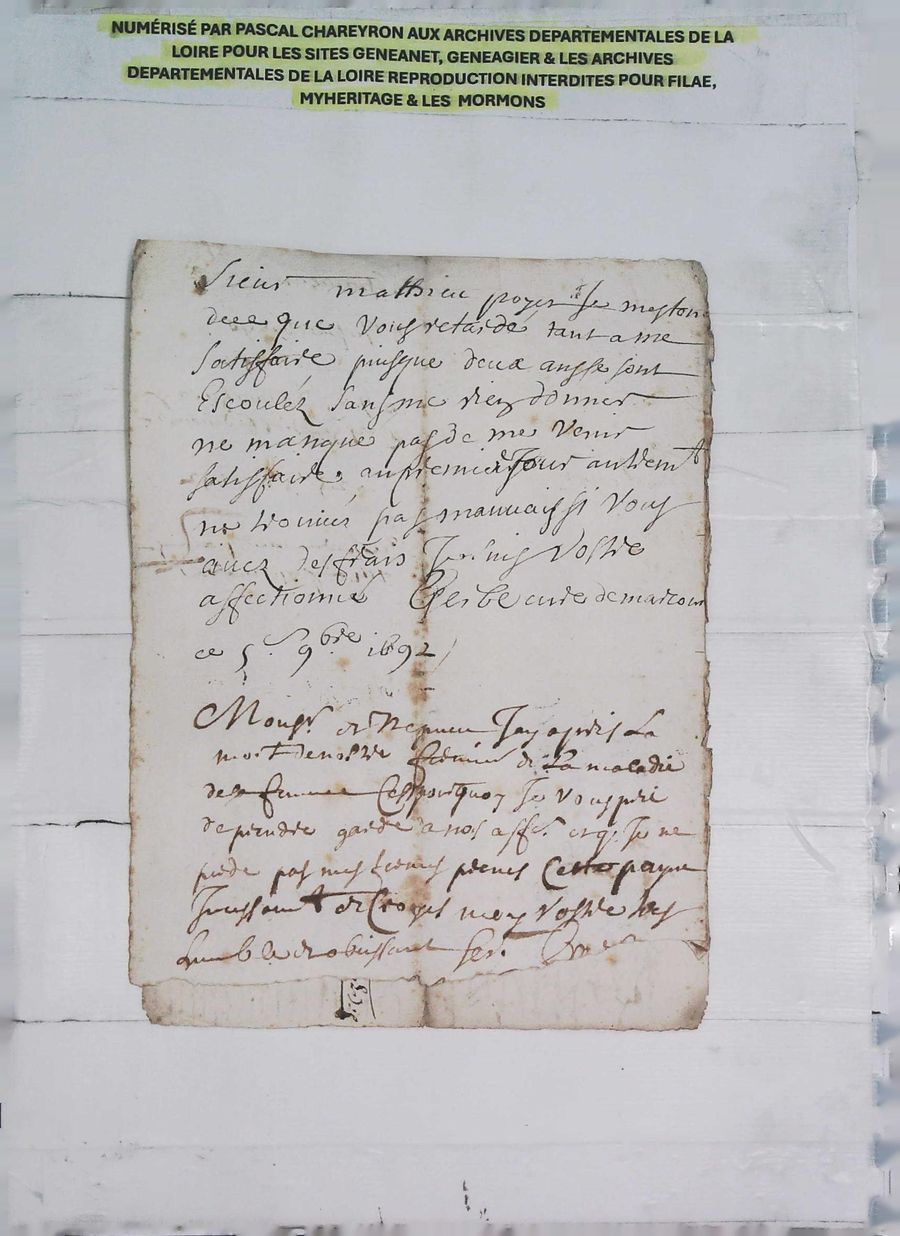 NUMÉRISÉ PAR PASCAL CHAREYRON AUX ARCHIVES DEPARTEMENTALES DE LA
LOIRE POUR LES SITES GENEANET, GENEAGIER & LES ARCHIVES
DEPARTEMENTALES DE LA LOIRE REPRODUCTION INTERDITES POUR FILAE,
MYHERITAGE & LES MORMONS
Sieur mathieu poyet Je meston
de que vous retardé tant a me
satisfaire puisque deux ans se sont
Escoulez sans me rien donner
ne manque pas de me venir
satisfaire au premier Jour autremt
ne trouvés pas mauvais si vous
avez des frais Je suis vostre
affectionné cure de marcoux
ce 5e 9bre 1692
Monsr Jay apris La
mort de nostre & La maladie
de sa femme Cest pourquoy Je vous prie
de prendre garde a nos aff. Je ne
pas mes peines
moy vostre
humble & obeissant ser.